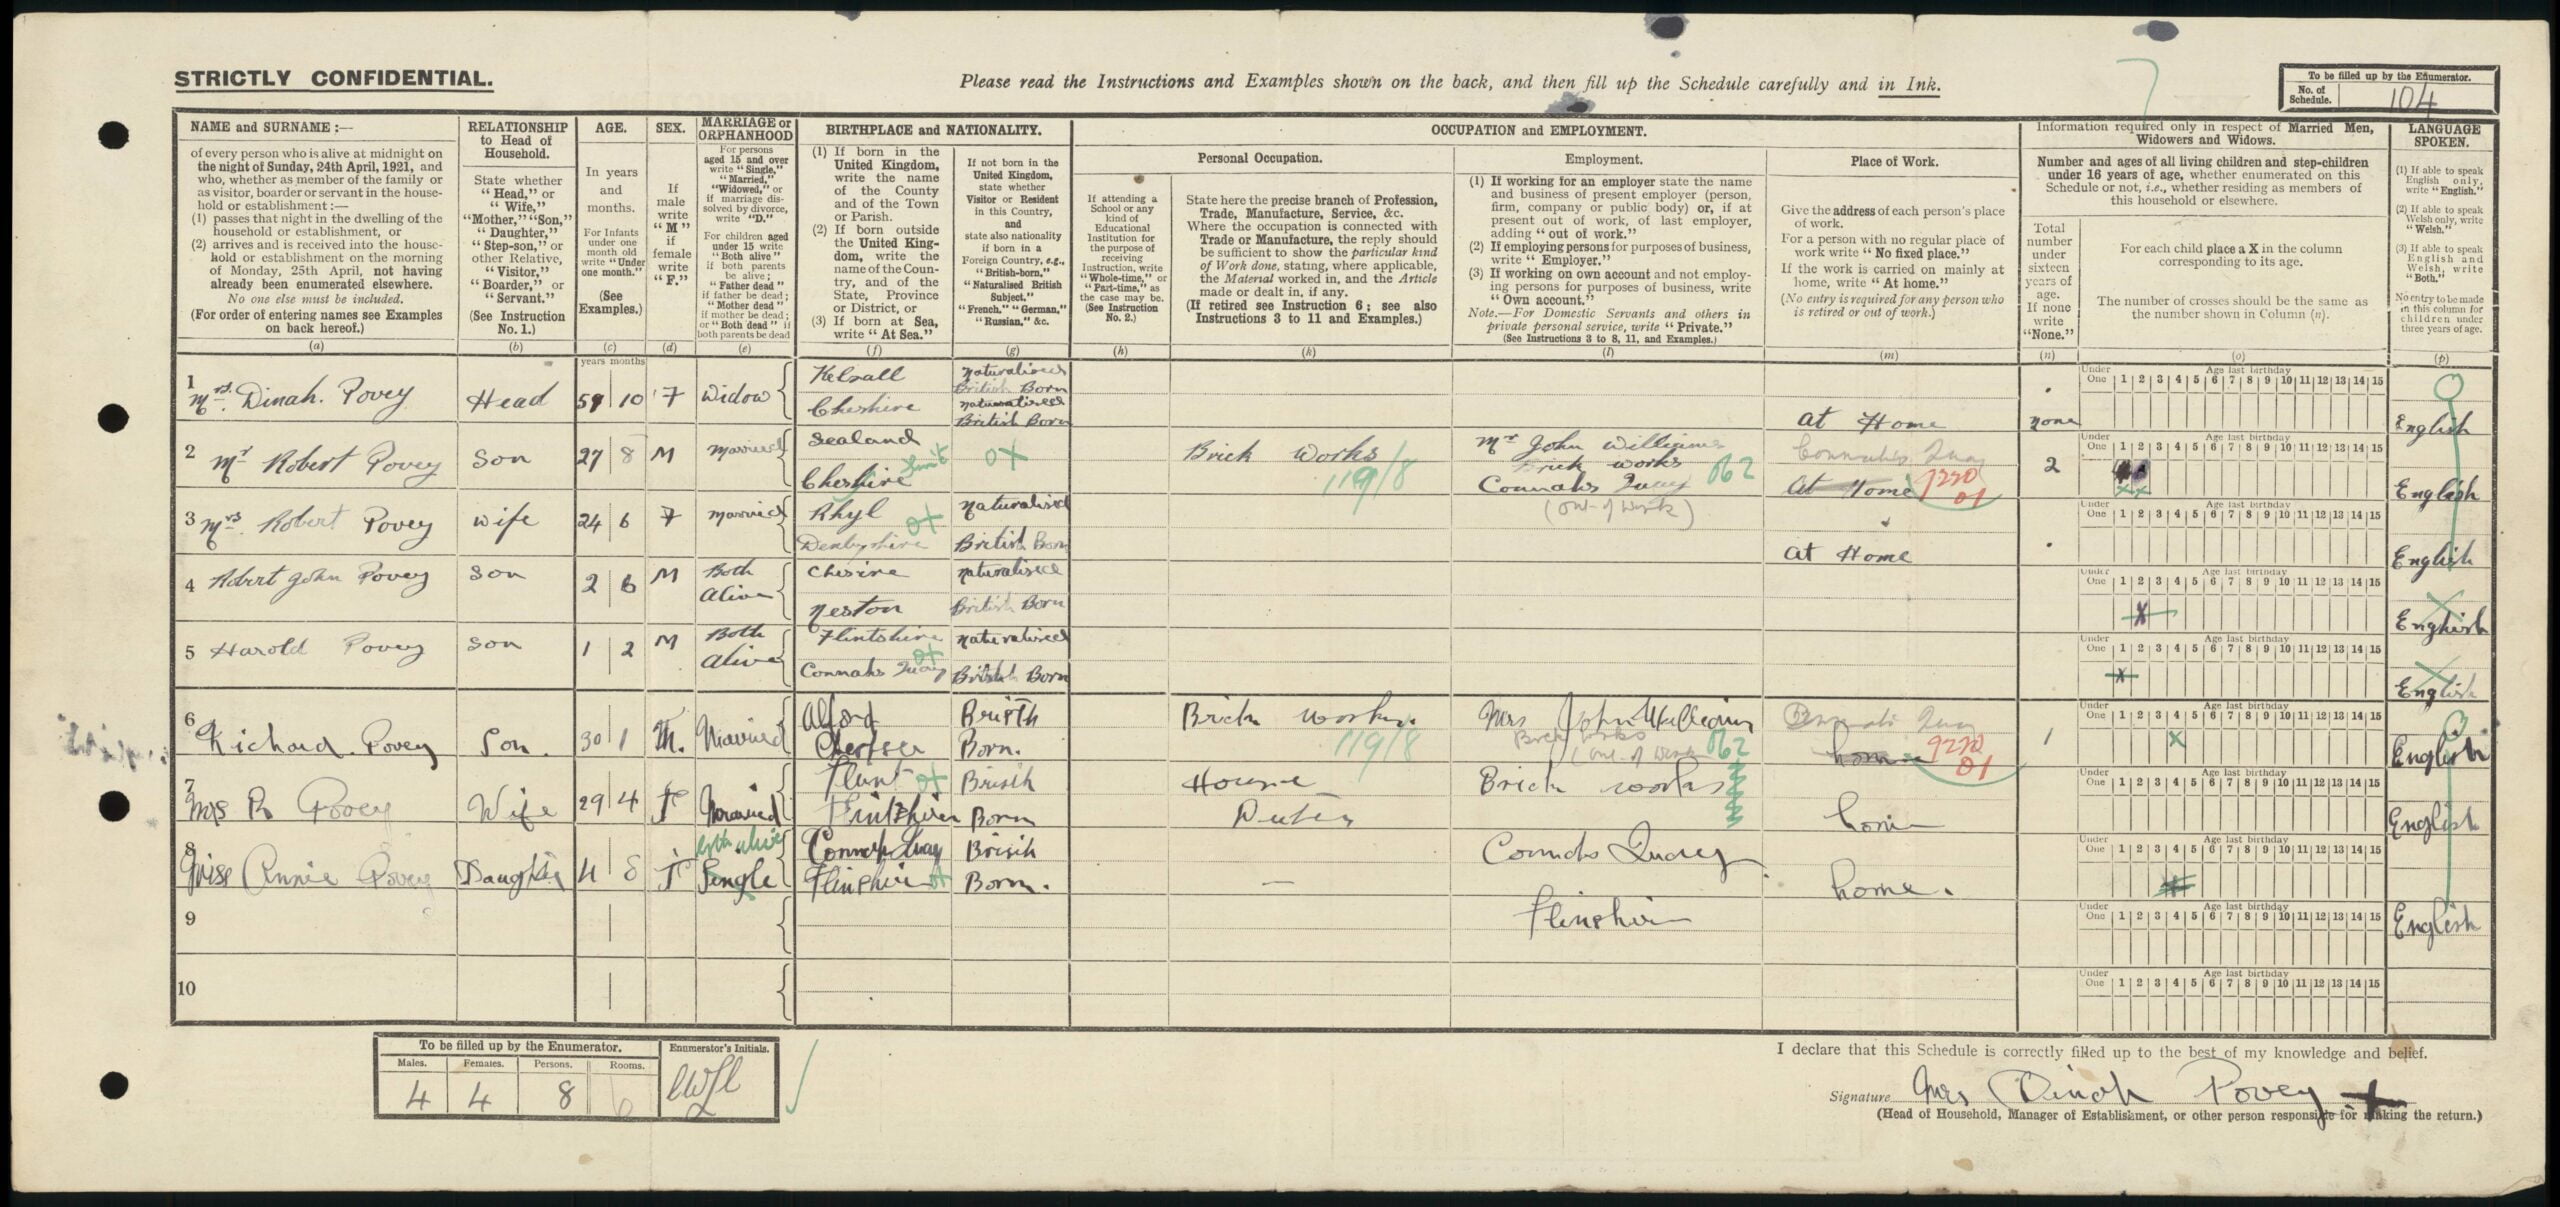 STRICTLY CONFIDENTIAL.
Please read the Instructions and Examples shown on the back, and then fill up the Schedule carefully and in Ink.
To be filled up by the Enumerator.
No. of Schedule. 104
NAME and SURNAME :—
of every person who is alive at midnight on
the night of Sunday, 24th April, 1921, and
who, whether as member of the family or
as visitor, boarder or servant in the house-
hold or establishment :—
(1) passes that night in the dwelling of the
household or establishment, or
(2) arrives and is received into the house-
hold or establishment on the morning
of Monday, 25th April, not having
already been enumerated elsewhere.
No one else must be included.
(For order of entering names see Examples
on back hereof.)
(a)
RELATIONSHIP
to Head of
Household.
State whether
"Head," or
"Wife,"
"Mother," "Son,"
"Daughter,"
"Step-son," or
other Relative,
"Visitor,"
"Boarder," or
"Servant."
(See Instruction
No. 1.)
(b)
AGE.
In years
and
months.
For Infants
under one
month old
write "Under
one month."
(See
Examples.)
(c)
years months
SEX.
If
male
write
"M"
if
female
write
"F."
(d)
MARRIAGE or
ORPHANHOOD
For persons
aged 15 and over
write "Single,"
"Married,"
"Widowed," or
if marriage dis-
solved by divorce,
write "D."
For children aged
under 15 write
"Both alive"
if both parents
be alive;
"Father dead"
if father be dead;
"Mother dead"
if mother be dead;
or "Both dead" if
both parents be dead
(e)
BIRTHPLACE and NATIONALITY.
(1) If born in the
United Kingdom,
write the name
of the County
and of the Town
or Parish.
(2) If born outside
the United King-
dom, write the
name of the Coun-
try, and of the
State, Province
or District, or
(3) If born at Sea,
write "At Sea."
(f)
If not born in the
United Kingdom,
state whether
Visitor or Resident
in this Country,
and
state also nationality
if born in a
Foreign Country, e.g.,
"British-born,"
"Naturalised British
Subject,"
"French," "German,"
"Russian," &c.
(g)
OCCUPATION and EMPLOYMENT.
If attending a
School or any
kind of
Educational
Institution for
the purpose of
receiving
Instruction, write
"Whole-time," or
"Part-time," as
the case may be.
(See Instruction
No. 2.)
(h)
Personal Occupation.
State here the precise branch of Profession,
Trade, Manufacture, Service, &c.
Where the occupation is connected with
Trade or Manufacture, the reply should
be sufficient to show the particular kind
of Work done, stating, where applicable,
the Material worked in, and the Article
made or dealt in, if any.
(If retired see Instruction 6; see also
Instructions 3 to 11 and Examples.)
(k)
Employment.
(1) If working for an employer state the name
and business of present employer (person,
firm, company or public body) or, if at
present out of work, of last employer,
adding "out of work."
(2) If employing persons for purposes of business,
write "Employer."
(3) If working on own account and not employ-
ing persons for purposes of business, write
"Own account."
Note.—For Domestic Servants and others in
private personal service, write "Private."
(See Instructions 3 to 8, 11, and Examples.)
(l)
Place of Work.
Give the address of each person's place
of work.
For a person with no regular place of
work write "No fixed place."
If the work is carried on mainly at
home, write "At home."
(No entry is required for any person who
is retired or out of work.)
(m)
Information required only in respect of Married Men,
Widowers and Widows.
Number and ages of all living children and step-children
under 16 years of age, whether enumerated on this
Schedule or not, i.e., whether residing as members of
this household or elsewhere.
Total
number
under
sixteen
years of
age.
If none
write
"None."
(n)
For each child place a X in the column
corresponding to its age.
The number of crosses should be the same as
the number shown in Column (n).
(o)
LANGUAGE
SPOKEN.
(1) If able to speak
English only,
write "English."
(2) If able to speak
Welsh only, write
"Welsh."
(3) If able to speak
English and
Welsh, write
"Both."
No entry to be made
in this column for
children under
three years of age.
(p)
Under One 1 2 3 4 5 6 7 8 9 10 11 12 13 14 15
Age last birthday
1 Mrs. Dinah. Povey Head 59 10 F Widow Kelsall Cheshire Naturalised British Born Naturalised British Born at Home none English
2 Mr Robert Povey Son 27 8 M Married Sealand Cheshire Brick Works 119/8 Mr John Williams Brick works Connahs Quay (out of work) 062 Connahs Quay At Home 9220 01 2 English
3 Mrs. Robert Povey Wife 24 6 F Married Rhyl Denbyshire Naturalised British Born at Home English
4 Robert John Povey Son 2 6 M Both Alive Chesire Neston Naturalised British Born X English
5 Harold Povey Son 1 2 M Both Alive Flintshire Connahs Quay Naturalised British Born X English
6 Richard. Povey Son. 30 1 M. Married British Born. Brick works. 119/8 Mrs John William Brick works (out of work 062 Quay home 9220 01 1 X English
7 Mrs R Povey Wife 29 4 F Married Flint British Born House Duties Brick works home English
8 Miss Annie Povey Daughter 4 8 F both alive Single Connah Quay Flinshire British Born. — Connahs Quay home. English
9 Flinshire
10
To be filled up by the Enumerator.
Males. Females. Persons. Rooms.
4 4 8 6
Enumerator's Initials.
I declare that this Schedule is correctly filled up to the best of my knowledge and belief.
Signature Mrs Dinah Povey X
(Head of Household, Manager of Establishment, or other person responsible for making the return.)